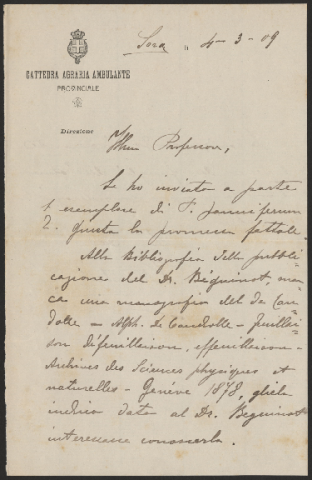 CATTEDRA AGRARIA AMBULANTE
PROVINCIALE
Direzione
Sora li 4-3-09
Illmo Professore,
Le ho inviato a parte
1 esemplare di P.
2. giusta la promessa fattale.
Alla Bibliografia della pubbli-
cazione del Dr. Béguinot, man-
ca una monografia del de Can-
dolle - Alph. de Candolle - feuillai-
son défeuillaison, effeuillaison -
Archives des Sciences physiques et
naturelles - Genéve 1878, gliela
indico data al Dr. Beguinot
interessasse conoscerla.